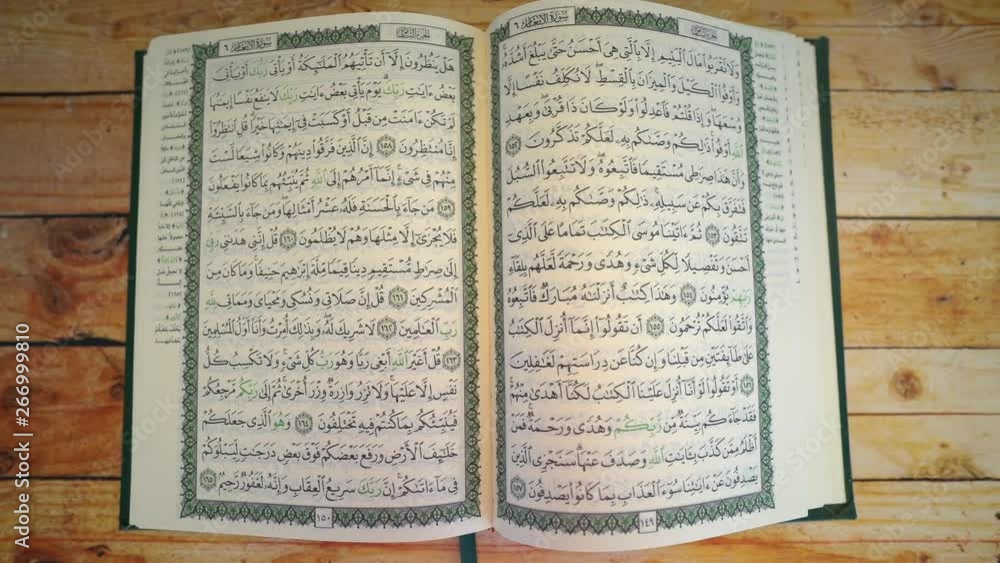 سُورَةُ الأَنْعَامِ ٦
وَلَا تَقْرَبُوا۟ مَالَ ٱلْيَتِيمِ إِلَّا بِٱلَّتِى هِىَ أَحْسَنُ حَتَّىٰ يَبْلُغَ أَشُدَّهُۥ
وَأَوْفُوا۟ ٱلْكَيْلَ وَٱلْمِيزَانَ بِٱلْقِسْطِ ۖ لَا نُكَلِّفُ نَفْسًا إِلَّا
وُسْعَهَا ۖ وَإِذَا قُلْتُمْ فَٱعْدِلُوا۟ وَلَوْ كَانَ ذَا قُرْبَىٰ ۖ وَبِعَهْدِ
ٱللَّهِ أَوْفُوا۟ ۚ ذَٰلِكُمْ وَصَّىٰكُم بِهِۦ لَعَلَّكُمْ تَذَكَّرُونَ ١٥٢
وَأَنَّ هَٰذَا صِرَٰطِى مُسْتَقِيمًا فَٱتَّبِعُوهُ ۖ وَلَا تَتَّبِعُوا۟ ٱلسُّبُلَ
فَتَفَرَّقَ بِكُمْ عَن سَبِيلِهِۦ ۚ ذَٰلِكُمْ وَصَّىٰكُم بِهِۦ لَعَلَّكُمْ
تَتَّقُونَ ١٥٣ ثُمَّ ءَاتَيْنَا مُوسَى ٱلْكِتَٰبَ تَمَامًا عَلَى ٱلَّذِىٓ
أَحْسَنَ وَتَفْصِيلًا لِّكُلِّ شَىْءٍ وَهُدًى وَرَحْمَةً لَّعَلَّهُم بِلِقَآءِ
رَبِّهِمْ يُؤْمِنُونَ ١٥٤ وَهَٰذَا كِتَٰبٌ أَنزَلْنَٰهُ مُبَارَكٌ فَٱتَّبِعُوهُ
وَٱتَّقُوا۟ لَعَلَّكُمْ تُرْحَمُونَ ١٥٥ أَن تَقُولُوٓا۟ إِنَّمَآ أُنزِلَ ٱلْكِتَٰبُ
عَلَىٰ طَآئِفَتَيْنِ مِن قَبْلِنَا وَإِن كُنَّا عَن دِرَاسَتِهِمْ لَغَٰفِلِينَ
١٥٦ أَوْ تَقُولُوا۟ لَوْ أَنَّآ أُنزِلَ عَلَيْنَا ٱلْكِتَٰبُ لَكُنَّآ أَهْدَىٰ مِنْهُمْ ۚ
فَقَدْ جَآءَكُم بَيِّنَةٌ مِّن رَّبِّكُمْ وَهُدًى وَرَحْمَةٌ ۚ فَمَنْ
أَظْلَمُ مِمَّن كَذَّبَ بِـَٔايَٰتِ ٱللَّهِ وَصَدَفَ عَنْهَا ۗ سَنَجْزِى ٱلَّذِينَ
يَصْدِفُونَ عَنْ ءَايَٰتِنَا سُوٓءَ ٱلْعَذَابِ بِمَا كَانُوا۟ يَصْدِفُونَ ١٥٧
١٤٩
سُورَةُ الأَنْعَامِ ٦
هَلْ يَنظُرُونَ إِلَّآ أَن تَأْتِيَهُمُ ٱلْمَلَٰٓئِكَةُ أَوْ يَأْتِىَ رَبُّكَ أَوْ يَأْتِىَ
بَعْضُ ءَايَٰتِ رَبِّكَ ۗ يَوْمَ يَأْتِى بَعْضُ ءَايَٰتِ رَبِّكَ لَا يَنفَعُ نَفْسًا إِيمَٰنُهَا
لَمْ تَكُنْ ءَامَنَتْ مِن قَبْلُ أَوْ كَسَبَتْ فِىٓ إِيمَٰنِهَا خَيْرًا ۗ قُلِ ٱنتَظِرُوٓا۟
إِنَّا مُنتَظِرُونَ ١٥٨ إِنَّ ٱلَّذِينَ فَرَّقُوا۟ دِينَهُمْ وَكَانُوا۟ شِيَعًا لَّسْتَ
مِنْهُمْ فِى شَىْءٍ ۚ إِنَّمَآ أَمْرُهُمْ إِلَى ٱللَّهِ ثُمَّ يُنَبِّئُهُم بِمَا كَانُوا۟ يَفْعَلُونَ
١٥٩ مَن جَآءَ بِٱلْحَسَنَةِ فَلَهُۥ عَشْرُ أَمْثَالِهَا ۖ وَمَن جَآءَ بِٱلسَّيِّئَةِ
فَلَا يُجْزَىٰٓ إِلَّا مِثْلَهَا وَهُمْ لَا يُظْلَمُونَ ١٦٠ قُلْ إِنَّنِى هَدَىٰنِى رَبِّىٓ
إِلَىٰ صِرَٰطٍ مُّسْتَقِيمٍ دِينًا قِيَمًا مِّلَّةَ إِبْرَٰهِيمَ حَنِيفًا ۚ وَمَا كَانَ مِنَ
ٱلْمُشْرِكِينَ ١٦١ قُلْ إِنَّ صَلَاتِى وَنُسُكِى وَمَحْيَاىَ وَمَمَاتِى لِلَّهِ
رَبِّ ٱلْعَٰلَمِينَ ١٦٢ لَا شَرِيكَ لَهُۥ ۖ وَبِذَٰلِكَ أُمِرْتُ وَأَنَا۠ أَوَّلُ ٱلْمُسْلِمِينَ
١٦٣ قُلْ أَغَيْرَ ٱللَّهِ أَبْغِى رَبًّا وَهُوَ رَبُّ كُلِّ شَىْءٍ ۚ وَلَا تَكْسِبُ كُلُّ
نَفْسٍ إِلَّا عَلَيْهَا ۚ وَلَا تَزِرُ وَازِرَةٌ وِزْرَ أُخْرَىٰ ۚ ثُمَّ إِلَىٰ رَبِّكُم مَّرْجِعُكُمْ
فَيُنَبِّئُكُم بِمَا كُنتُمْ فِيهِ تَخْتَلِفُونَ ١٦٤ وَهُوَ ٱلَّذِى جَعَلَكُمْ
خَلَٰٓئِفَ ٱلْأَرْضِ وَرَفَعَ بَعْضَكُمْ فَوْقَ بَعْضٍ دَرَجَٰتٍ لِّيَبْلُوَكُمْ
فِى مَآ ءَاتَىٰكُمْ ۗ إِنَّ رَبَّكَ سَرِيعُ ٱلْعِقَابِ وَإِنَّهُۥ لَغَفُورٌ رَّحِيمٌۢ ١٦٥
١٥٠
Adobe Stock | #266999810